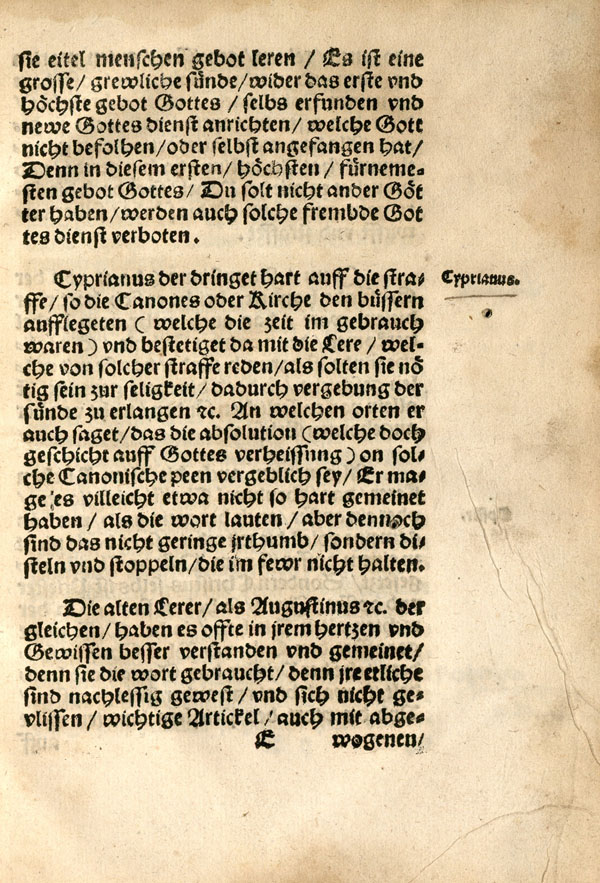 sie eitel menschen gebot leren / Es ist eine
grosse / grewliche sünde / wider das erste vnd
höchste gebot Gottes / selbs erfunden vnd
newe Gottes dienst anrichten / welche Gott
nicht befolhen / oder selbst angefangen hat /
Denn in diesem ersten / höchsten / fürneme⸗
sten gebot Gottes / Du solt nicht ander Göt
ter haben / werden auch solche frembde Got
tes dienst verboten.
Cyprianus der dringet hart auff die stra⸗
ffe / so die Canones oder Kirche den büssern
aufflegeten ( welche die zeit im gebrauch
waren ) vnd bestetiget da mit die Lere / wel⸗
che von solcher straffe reden / als solten sie nö
tig sein zur seligkeit / dadurch vergebung der
sünde zu erlangen ꝛc. An welchen orten er
auch saget / das die absolution ( welche doch
geschicht auff Gottes verheissung ) on sol⸗
che Canonische peen vergeblich sey / Er ma⸗
ge es villeicht etwa nicht so hart gemeinet
haben / als die wort lauten / aber dennoch
sind das nicht geringe jrthumb / sondern di⸗
steln vnd stoppeln / die im fewr nicht halten.
Cyprianus.
Die alten Lerer / als Augustinus ꝛc. der
gleichen / haben es offte in jrem hertzen vnd
Gewissen besser verstanden vnd gemeinet /
denn sie die wort gebraucht / denn jr etliche
sind nachlessig gewest / vnd sich nicht ge⸗
vlissen / wichtige Artickel / auch mit abge⸗
E wogenen /